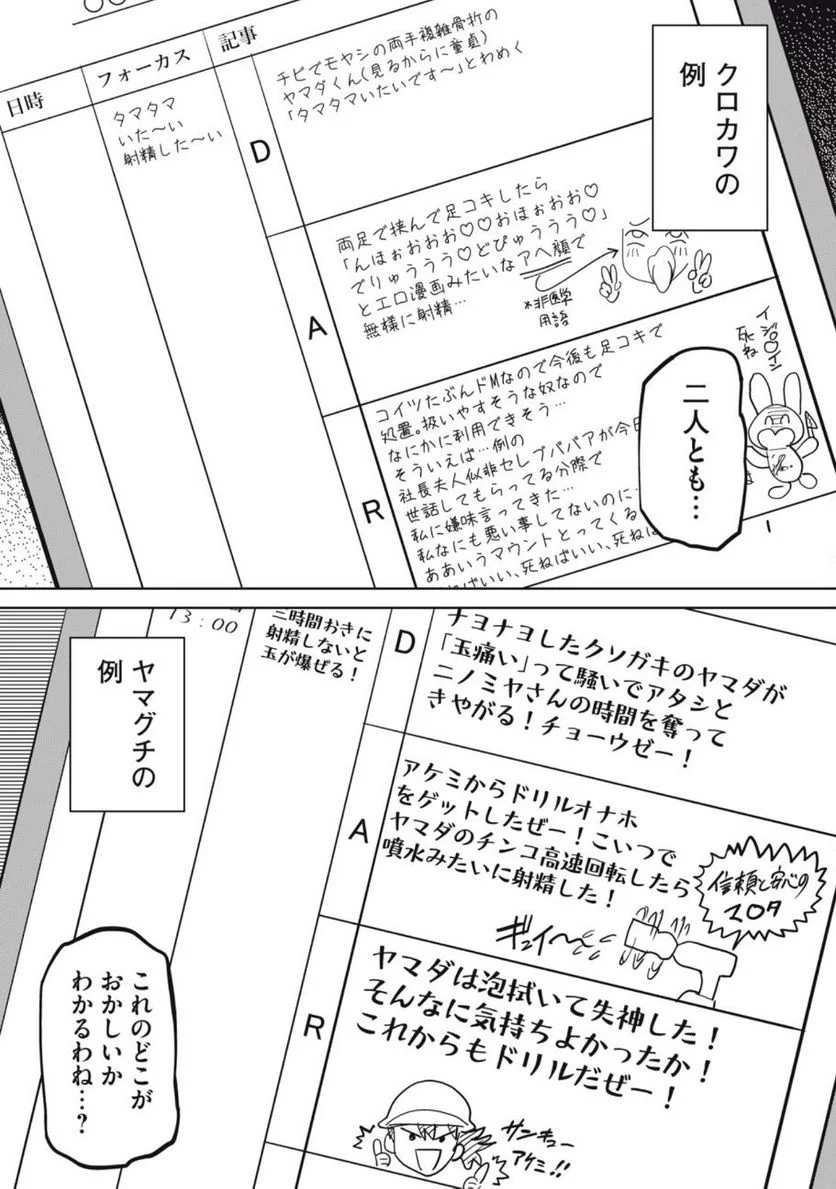 クロカワの
例
日時
フォーカス
記事
タマタマ
いた〜い
射精した〜い
D
チビでモヤシの両手複雑骨折の
ヤマダくん(見るからに童貞)
「タマタマいたいです〜」とわめく
A
両足で挟んで足コキしたら
「んほぉおおお♡♡おほぉおお♡
でりゅううう♡どぴゅううう♡」
とエロ漫画みたいなアヘ顔で
無様に射精…
*非医学
用語
R
コイツたぶんドMなので今後も足コキで
処置。扱いやすそうな奴なので
なにかに利用できそう…
そういえば…例の
社長夫人似非セレブババアが今日
世話してもらってる分際で
私に嫌味言ってきた…
私なにも悪い事してないのに…
ああいうマウントとってくる
ばいい、死ねばいい、死ねば
イジ○イン
死ね
二人とも…
1
ヤマグチの
例
13:00
三時間おきに
射精しないと
玉が爆ぜる!
D
ナヨナヨしたクソガキのヤマダが
「玉痛い」って騒いでアタシと
ニノミヤさんの時間を奪って
きやがる!チョーウゼー!
A
アケミからドリルオナホ
をゲットしたぜー!こいつで
ヤマダのチンコ高速回転したら
噴水みたいに射精した!
信頼と安心の
マロタ
ギュイ〜〜
R
ヤマダは泡拭いて失神した!
そんなに気持ちよかったか!
これからもドリルだぜー!
サンキュー
アケミ!!
これのどこが
おかしいか
わかるわね…?